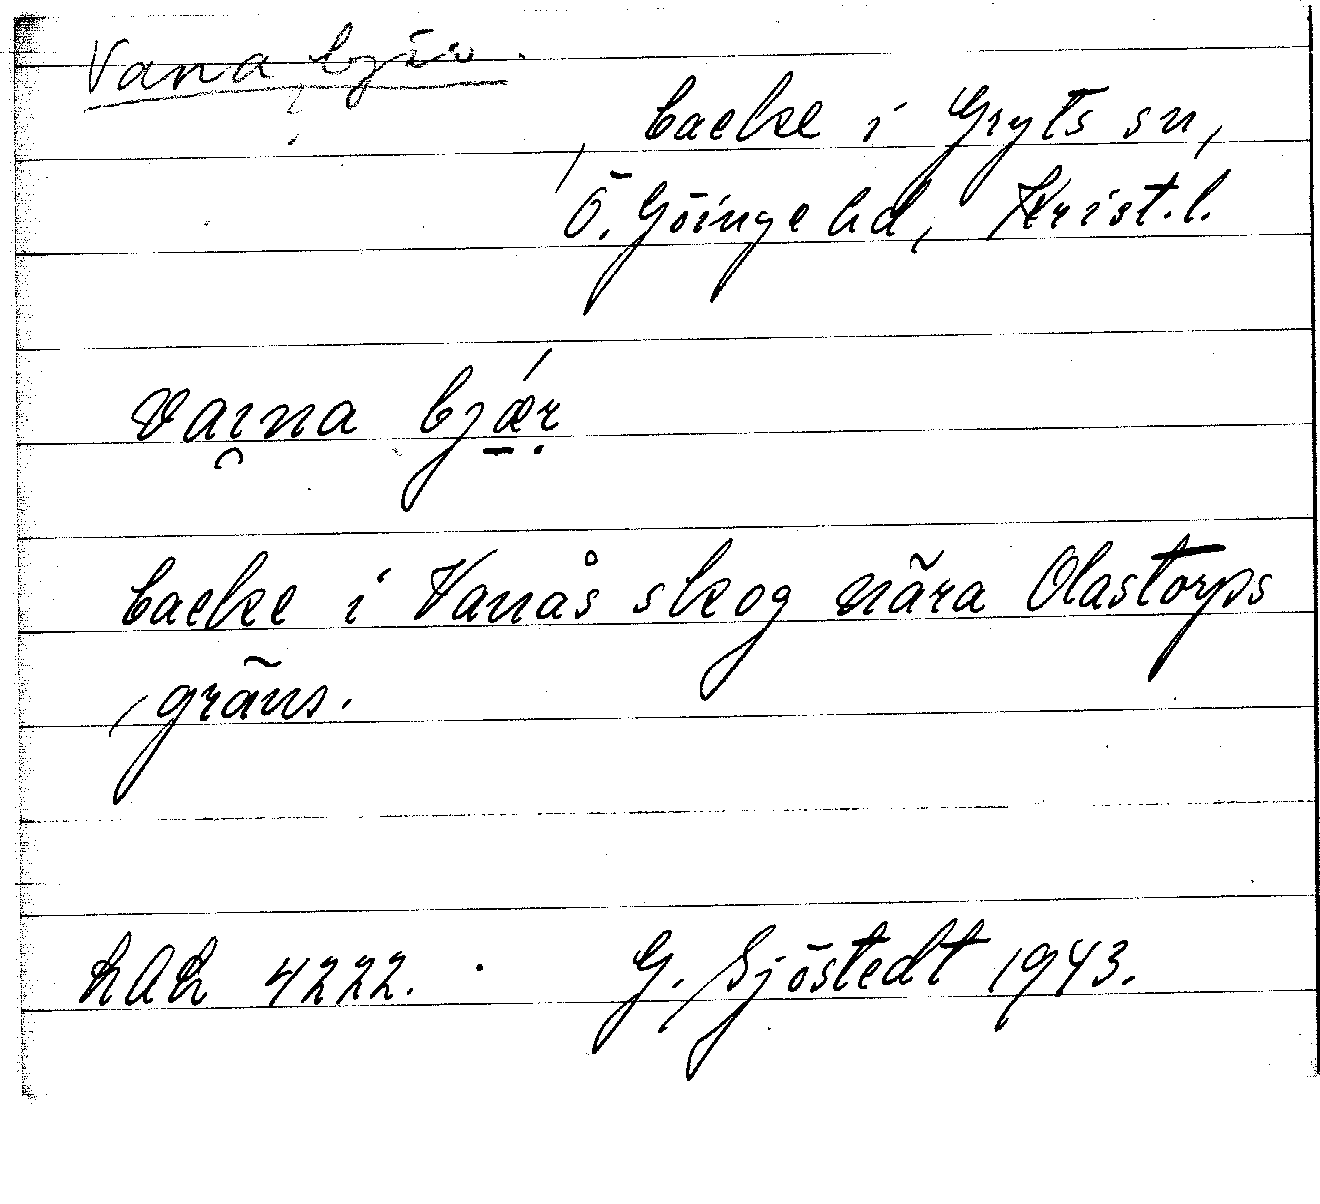 Vana bjär.
backe i Gryts sn,
Ö. Göinge hd, Krist. l.
vaına bjǽr
backe i Vanås skog nära Olastorps
gräns.
LAL 4222. G. Sjöstedt 1943.